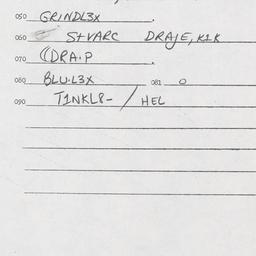 050 GRINDL3X .
060 S+VARC DRAJE, K1K
070 ((DRA.P .
080 BLU.L3X 081 0
090 T1NKL8-/HEL